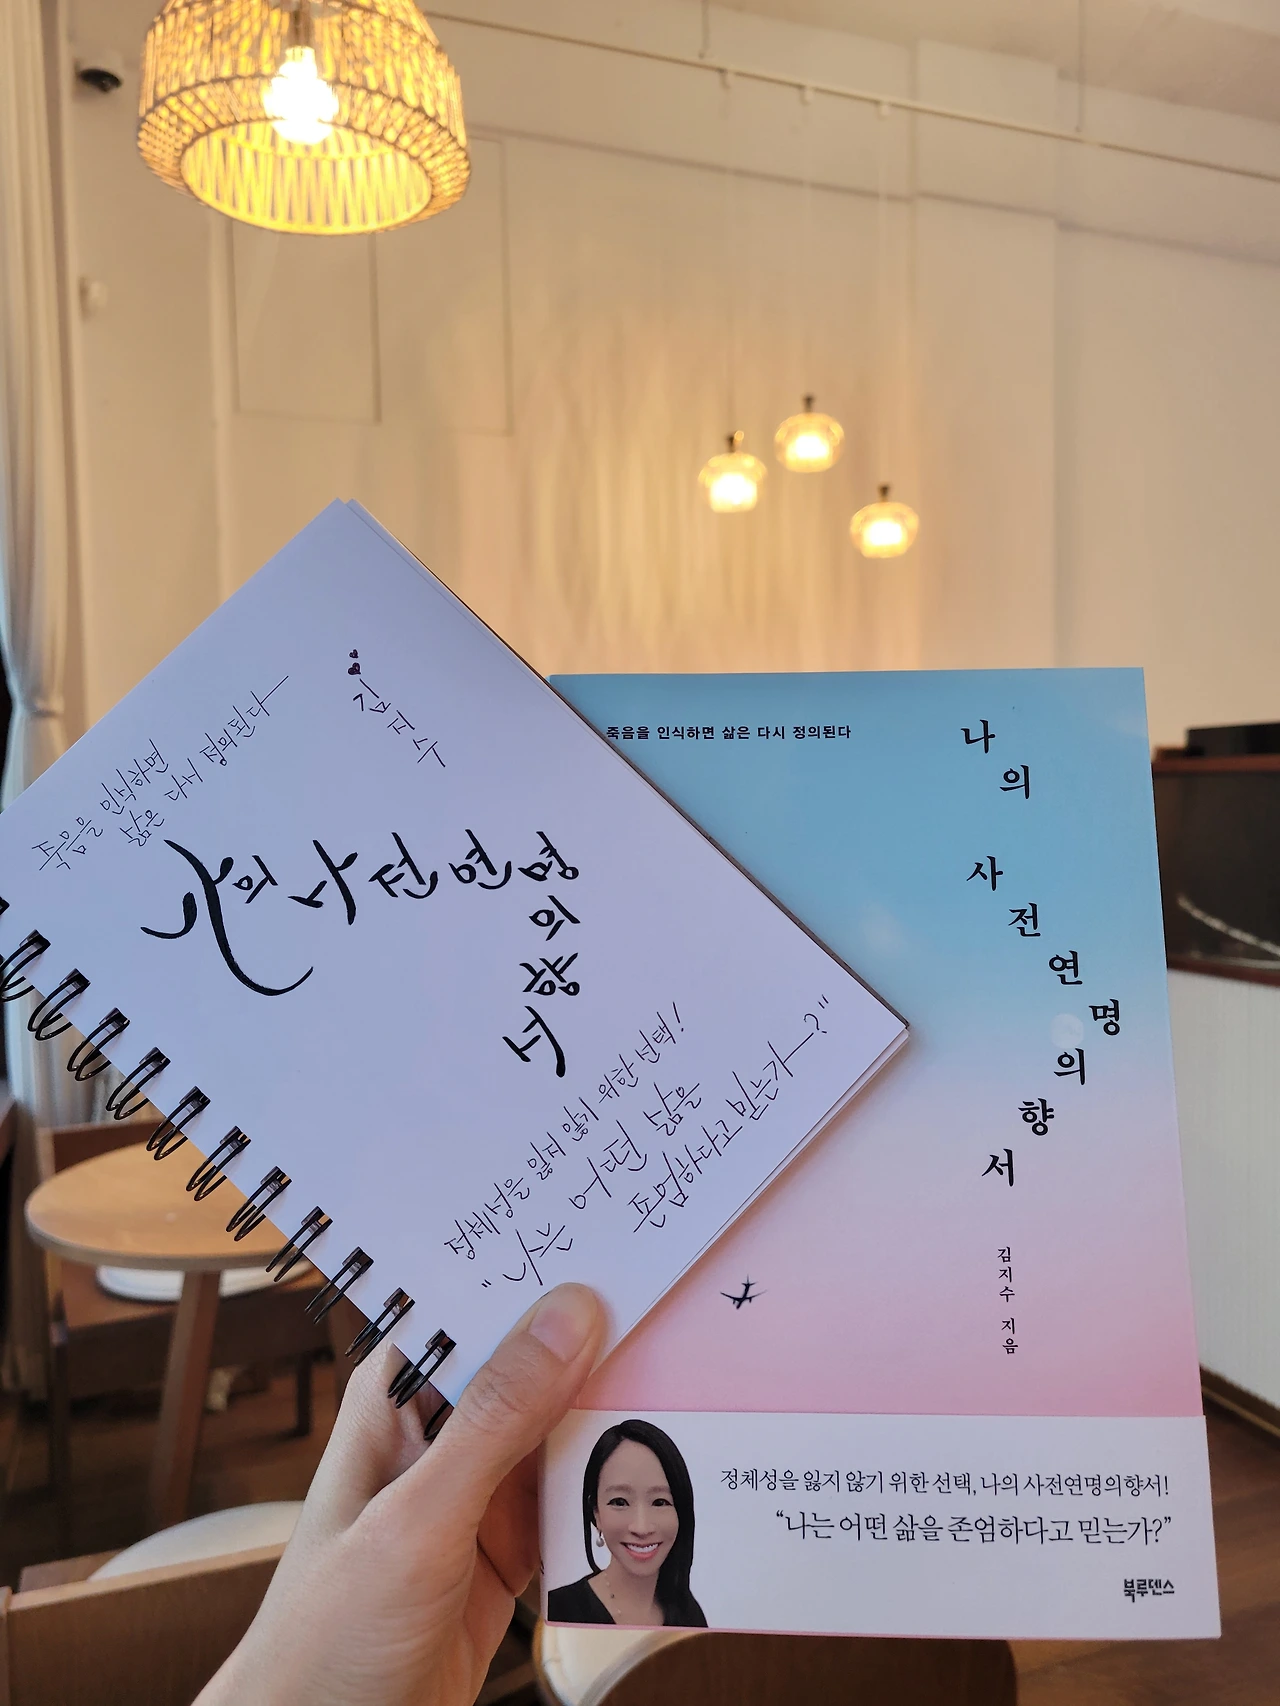 죽음을 인식하면
삶은 다시 정의된다
김지수
나의 사전연명
의
향
서
정체성을 잃지 않기 위한 선택!
"나는 어떤 삶을
존엄하다고 믿는가—?"
죽음을 인식하면 삶은 다시 정의된다
나의 사전연명의향서
김지수 지음
정체성을 잃지 않기 위한 선택, 나의 사전연명의향서!
“나는 어떤 삶을 존엄하다고 믿는가?”
북루덴스